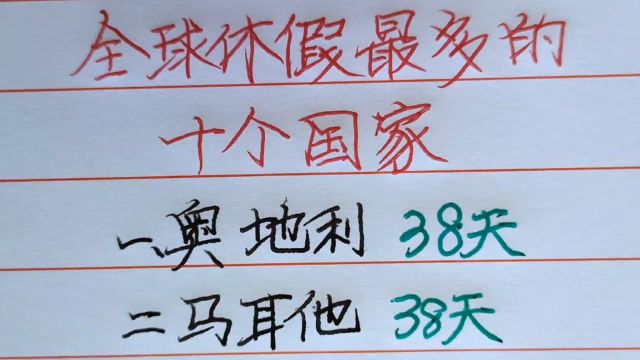 全球休假最多的
十个国家
一、奥地利 38天
二马耳他 38天